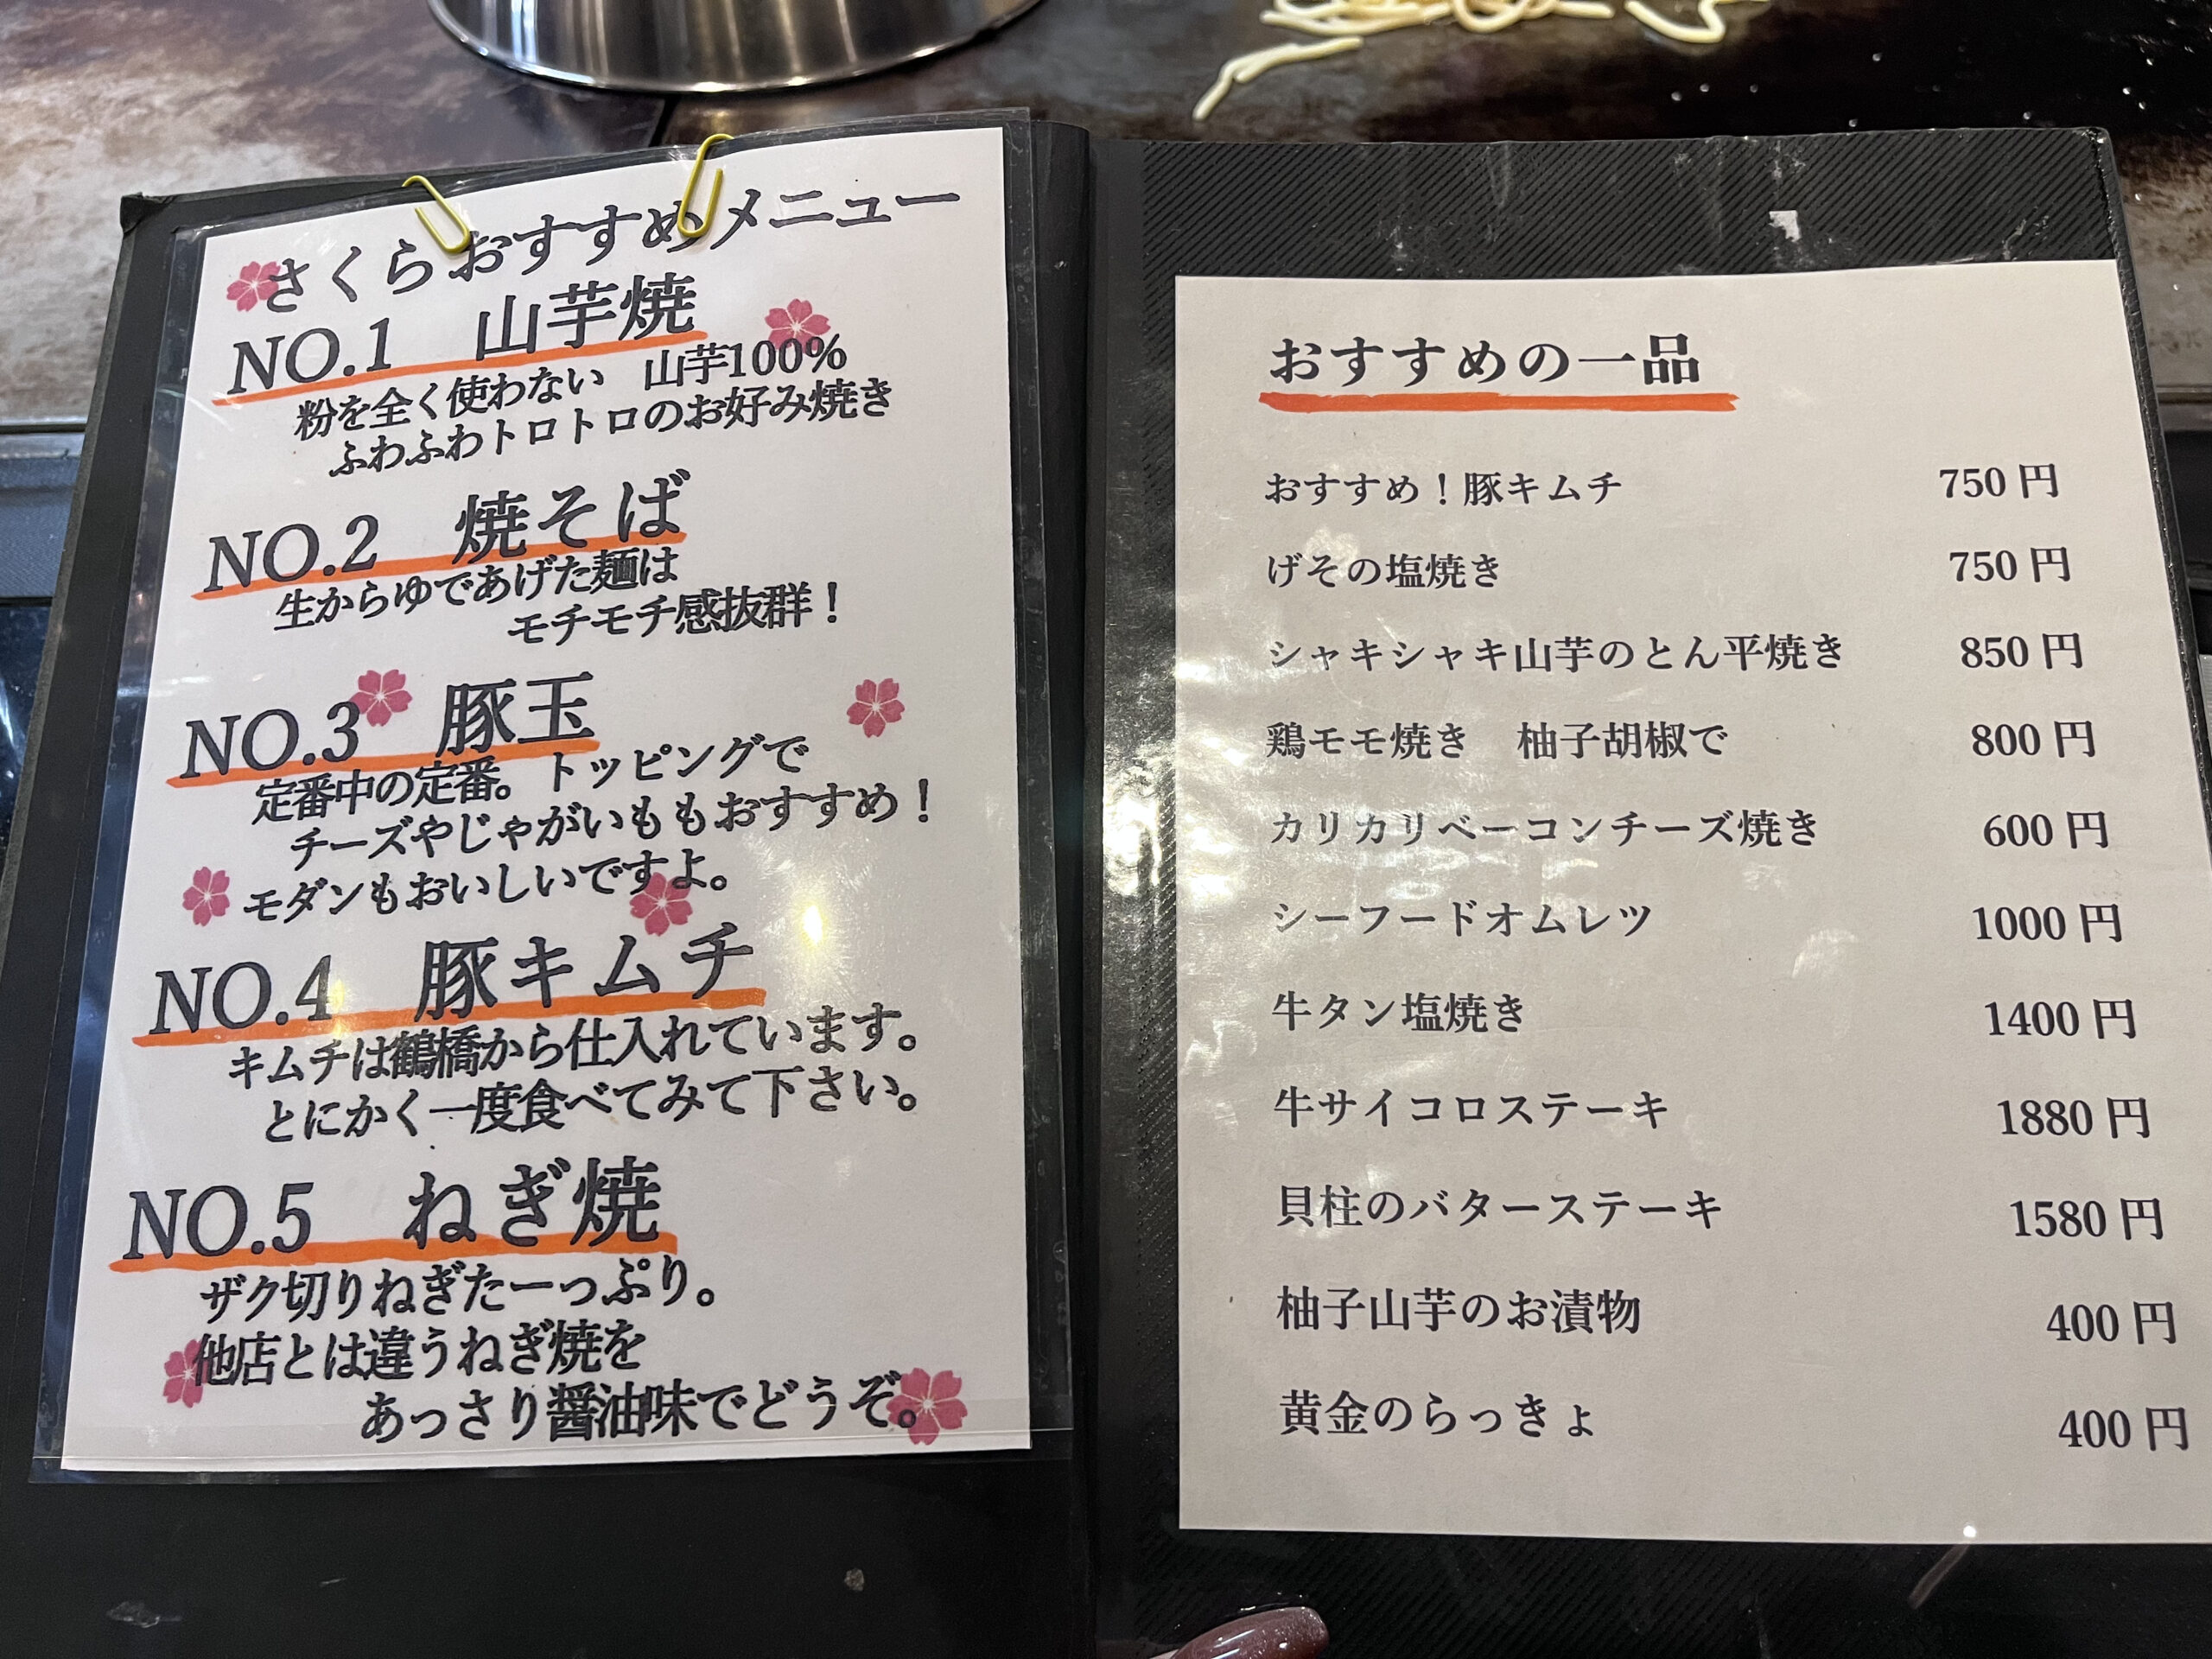 さくらおすすめメニュー
NO.1 山芋焼
粉を全く使わない 山芋100%
ふわふわトロトロのお好み焼き
NO.2 焼そば
生からゆであげた麺は
モチモチ感抜群！
NO.3 豚玉
定番中の定番。トッピングで
チーズやじゃがいももおすすめ！
モダンもおいしいですよ。
NO.4 豚キムチ
キムチは鶴橋から仕入れています。
とにかく一度食べてみて下さい。
NO.5 ねぎ焼
ザク切りねぎたーっぷり。
他店とは違うねぎ焼を
あっさり醤油味でどうぞ。
おすすめの一品
おすすめ！豚キムチ 750円
げその塩焼き 750円
シャキシャキ山芋のとん平焼き 850円
鶏モモ焼き 柚子胡椒で 800円
カリカリベーコンチーズ焼き 600円
シーフードオムレツ 1000円
牛タン塩焼き 1400円
牛サイコロステーキ 1880円
貝柱のバターステーキ 1580円
柚子山芋のお漬物 400円
黄金のらっきょ 400円